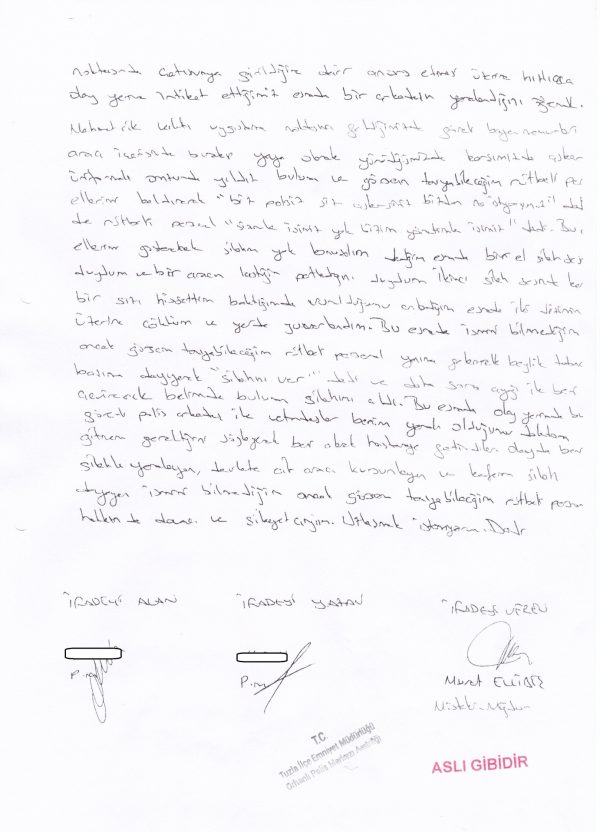 noktasında çatışmaya girildiğine dair anons etmesi üzerine hızlıca
olay yerine intikal ettiğimiz esnada bir arkadaşın yaralandığını öğrendik.
Mehmetcik vakfı uygulama noktasına geldiğimizde
aracı içerisinde yaya olarak yürüdüğümüzde karşımızda asker
üniformalı omzunda yıldız bulunan ve görsem tanıyabileceğim rütbeli per
ellerini kaldırarak "biz polisiz siz askersiniz bizden ne istiyorsunuz" dedi
de rütbeli personel "sizinle işimiz yok bizim yönetimle işimiz" dedi. Bu
ellerimi göstererek silahım yok konuşalım dediğim esnada bir el silah sesi
duydum ve bir aracın lastiğin patladığını duydum ikinci silah sesinde ben
bir sızı hissettim baktığımda vurulduğumu anladığım esnada iki dizimin
üzerine çöktüm ve yerde yuvarlandım. Bu esnada ismini bilmediğim
ancak görsem tanıyabileceğim rütbeli personel yanıma gelerek beylik
başıma dayayarak "silahını ver" dedi ve daha sonra ayağı ile beni
çevirerek belimde bulunan silahımı aldı. Bu esnada olay yerinde bu
görevli polis arkadaş ile vatandaşlar benim yaralı olduğumu
gitmem gerektiğini söyleyerek beni alarak hastaneye getirdiler olayda beni
silahla yaralayan, devlete ait aracı kurşunlayan ve kafama silah
dayayan ismini bilmediğim ancak görsem tanıyabileceğim rütbeli personel
hakkında davacı ve şikayetçiyim. Uzlaşmak istemiyorum. Dedi
İFADEYİ ALAN İFADEYİ YAZAN İFADEYİ VEREN
P.m. P.m.
Murat ELLİBEŞ
Müşteki-Mağdur
T.C.
Tuzla İlçe Emniyet Müdürlüğü
Orhanlı Polis Merkezi Amirliği
ASLI GİBİDİR